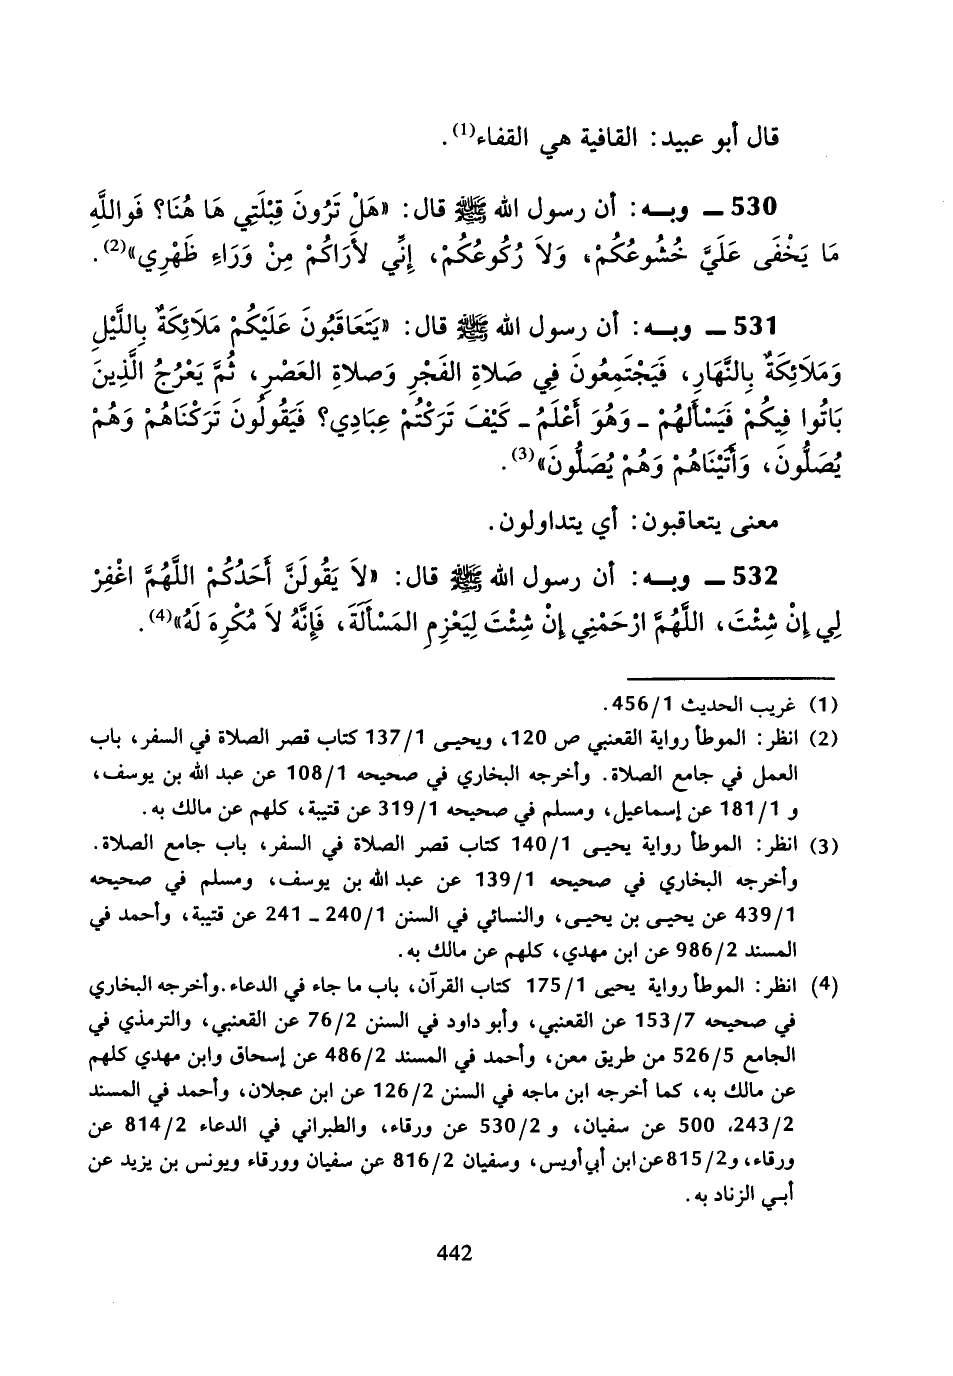 قال أبو عبيد: القافية هي القفاء(1).
530 ـ وبـه: أن رسول الله ﷺ قال: «هَلْ تَرُونَ قِبْلَتِي هَا هُنَا؟ فَواللَّهِ
مَا يَخْفَى عَلَيَّ خُشُوعُكُمْ، وَلاَ رُكُوعُكُمْ، إِنِّي لأَرَاكُمْ مِنْ وَرَاءِ ظَهْرِي»(2).
531 ـ وبـه: أن رسول الله ﷺ قال: «يَتَعَاقَبُونَ عَلَيْكُمْ مَلاَئِكَةٌ بِاللَّيْلِ
وَمَلاَئِكَةٌ بِالنَّهَارِ، فَيَجْتَمِعُونَ فِي صَلاَةِ الفَجْرِ وَصلاةِ العَصْرِ، ثُمَّ يَعْرُجُ الَّذِينَ
بَاتُوا فِيكُمْ فَيَسْأَلهُمْ - وَهُوَ أَعْلَمُ - كَيْفَ تَرَكْتُمْ عِبَادِي؟ فَيَقُولُونَ تَرَكْنَاهُمْ وَهُمْ
يُصَلُّونَ، وَأَتَيْنَاهُمْ وَهُمْ يُصَلُّونَ»(3).
معنى يتعاقبون: أي يتداولون.
532 ـ وبـه: أن رسول الله ﷺ قال: «لاَ يَقُولَنَّ أَحَدُكُمْ اللَّهُمَّ اغْفِرْ
لِي إِنْ شِئْتَ، اللَّهُمَّ ارْحَمْنِي إِنْ شِئْتَ لِيَعْزِمِ المَسْأَلَةَ، فَإِنَّهُ لاَ مُكْرِهَ لَهُ»(4).
(1) غريب الحديث 456/1.
(2) انظر: الموطأ رواية القعنبي ص 120، ويحيـى 137/1 كتاب قصر الصلاة في السفر، باب
العمل في جامع الصلاة. وأخرجه البخاري في صحيحه 108/1 عن عبد الله بن يوسف،
و 181/1 عن إسماعيل، ومسلم في صحيحه 319/1 عن قتيبة، كلهم عن مالك به.
(3) انظر: الموطأ رواية يحيـى 140/1 كتاب قصر الصلاة في السفر، باب جامع الصلاة.
وأخرجه البخاري في صحيحه 139/1 عن عبد الله بن يوسف، ومسلم في صحيحه
439/1 عن يحيـى بن يحيـى، والنسائي في السنن 240/1 - 241 عن قتيبة، وأحمد في
المسند 986/2 عن ابن مهدي، كلهم عن مالك به.
(4) انظر: الموطأ رواية يحيى 175/1 كتاب القرآن، باب ما جاء في الدعاء. وأخرجه البخاري
في صحيحه 153/7 عن القعنبي، وأبو داود في السنن 76/2 عن القعنبي، والترمذي في
الجامع 526/5 من طريق معن، وأحمد في المسند 486/2 عن إسحاق وابن مهدي كلهم
عن مالك به، كما أخرجه ابن ماجه في السنن 126/2 عن ابن عجلان، وأحمد في المسند
243/2، 500 عن سفيان، و 530/2 عن ورقاء، والطبراني في الدعاء 814/2 عن
ورقاء، و815/2 عن ابن أبي أويس، وسفيان 816/2 عن سفيان وورقاء ويونس بن يزيد عن
أبـي الزناد به.
442